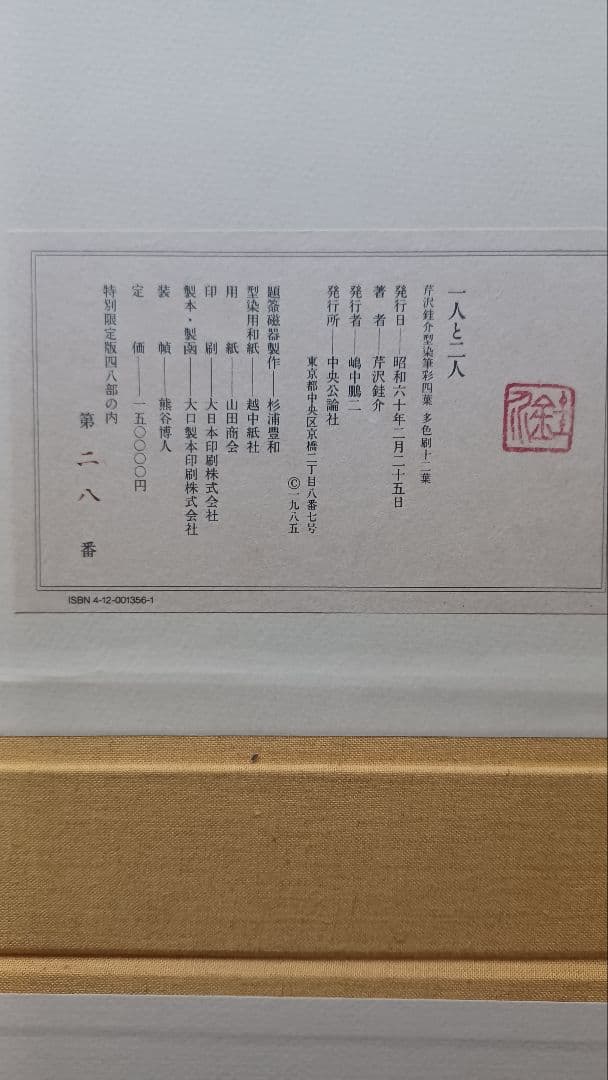 一人と二人
芹沢銈介型染筆彩四葉 多色刷十二葉
発行日――昭和六十年二月二十五日
著者――芹沢銈介
発行者――嶋中鵬二
発行所――中央公論社
東京都中央区京橋二丁目八番七号
©一九八五
題簽磁器製作――杉浦豊和
型染用和紙――越中紙社
用紙――山田商会
印刷――大日本印刷株式会社
製本・製函――大口製本印刷株式会社
装幀 熊谷博人
定価――一五〇〇〇〇円
特別限定版四八部の内
第二八番
ISBN 4-12-001356-1